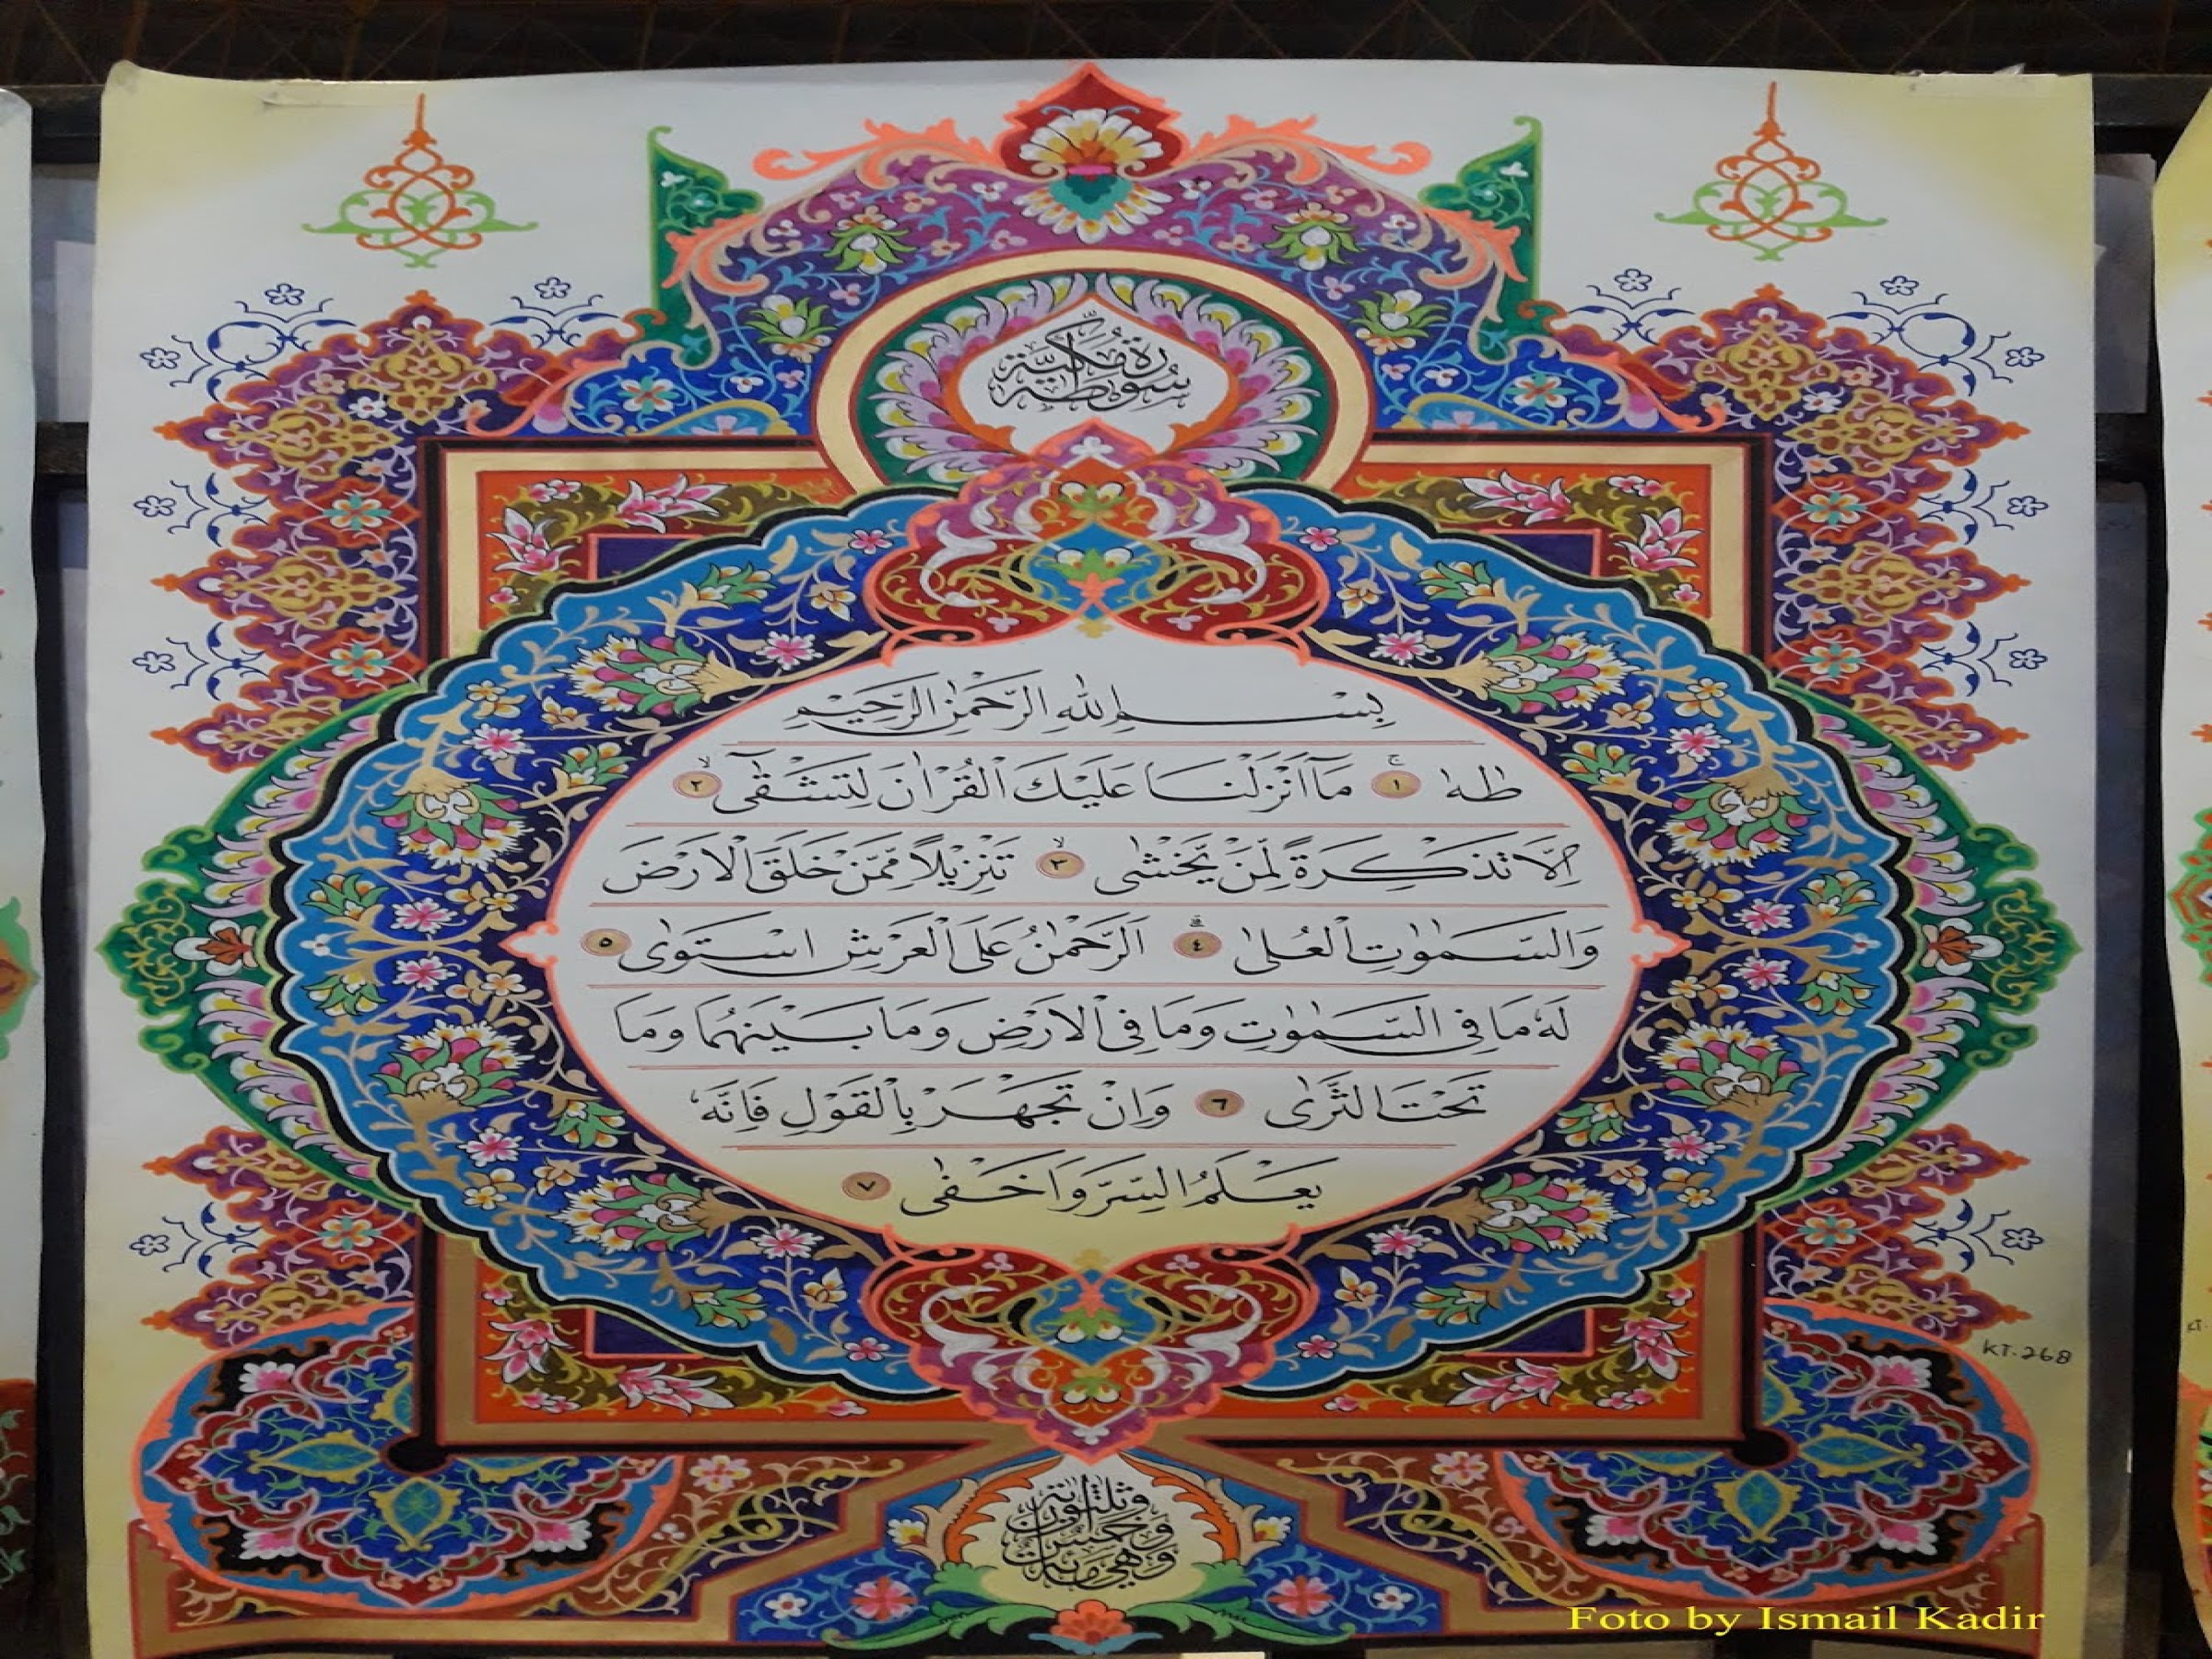 سورة طه مكية
بِسْمِ اللهِ الرَّحْمٰنِ الرَّحِيْمِ
طٰهٰ ۚ ١ مَآ اَنْزَلْنَا عَلَيْكَ الْقُرْاٰنَ لِتَشْقٰٓى ۙ ٢
اِلَّا تَذْكِرَةً لِّمَنْ يَّخْشٰى ۙ ٣ تَنْزِيْلًا مِّمَّنْ خَلَقَ الْاَرْضَ
وَالسَّمٰوٰتِ الْعُلٰى ۗ ٤ اَلرَّحْمٰنُ عَلَى الْعَرْشِ اسْتَوٰى ٥
لَهٗ مَا فِى السَّمٰوٰتِ وَمَا فِى الْاَرْضِ وَمَا بَيْنَهُمَا وَمَا
تَحْتَ الثَّرٰى ٦ وَاِنْ تَجْهَرْ بِالْقَوْلِ فَاِنَّهٗ
يَعْلَمُ السِّرَّ وَاَخْفٰى ٧
KT.268
وهي مائة وخمس وثلثون اية
Foto by Ismail Kadir